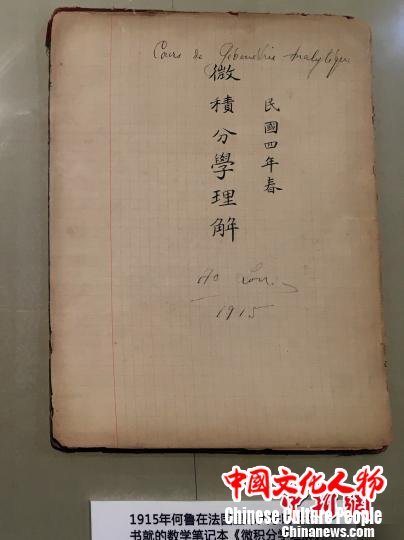 Cours de Géométrie Analytique
民國四年春
微積分學理解
Ho Lou
1915
中國文化人物
Chinese Culture People
Chinanews.com
1915年何鲁在法
书就的数学笔记本《微积分